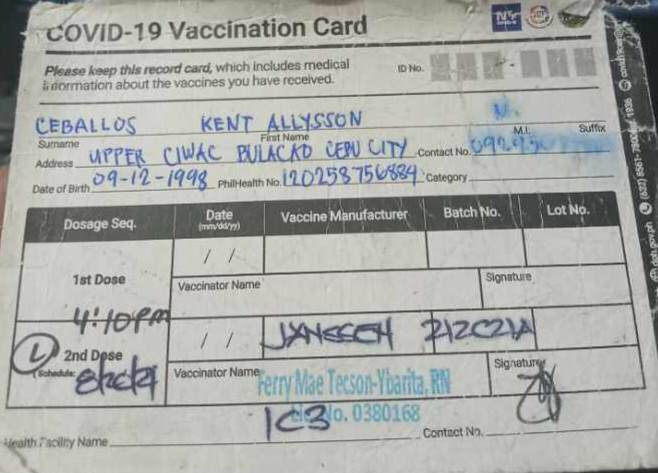 COVID-19 Vaccination Card
Please keep this record card, which includes medical
information about the vaccines you have received.
ID No. -
CEBALLOS KENT ALLYSSON
Surname First Name M.I. Suffix
Address UPPER CIWAC BULACAO CEBU CITY Contact No.
Date of Birth 09-12-1998 PhilHealth No. 120258756884 Category
Dosage Seq. Date (mm/dd/yy) Vaccine Manufacturer Batch No. Lot No.
/ /
1st Dose
Vaccinator Name Signature
4:10PM
/ / JANSSEN 212C21A
2nd Dose
(Schedule:
Vaccinator Name Ferry Mae Tecson-Ybarita, RN Signature
No. 0380168
Health Facility Name Contact No.
doh.gov.ph